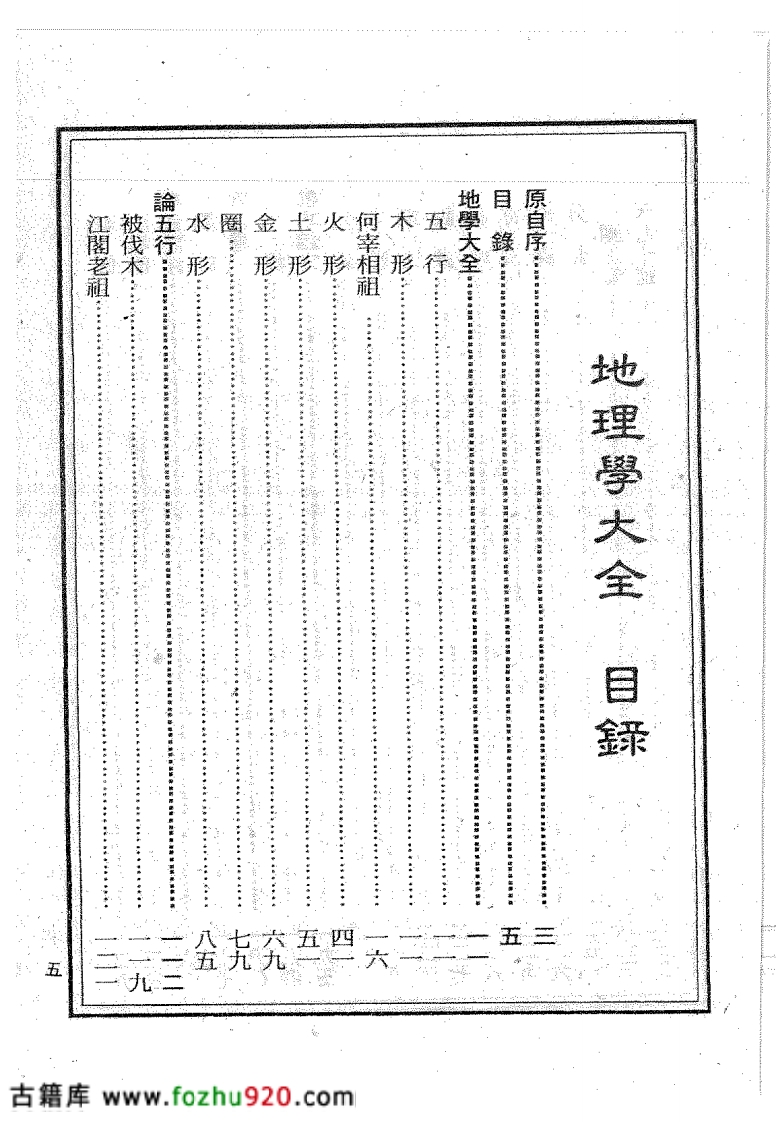 地理學大全 目錄
原自序…………三
目錄…………五
地學大全…………一一
五行…………一一
木形…………一一
何宰相祖…………一六
火形…………四一
土形…………五一
金形…………六九
圈…………七九
水形…………八五
論五行…………一一二
被伐木…………一一九
江閣老祖…………一二一
五
古籍库 www.fozhu920.com